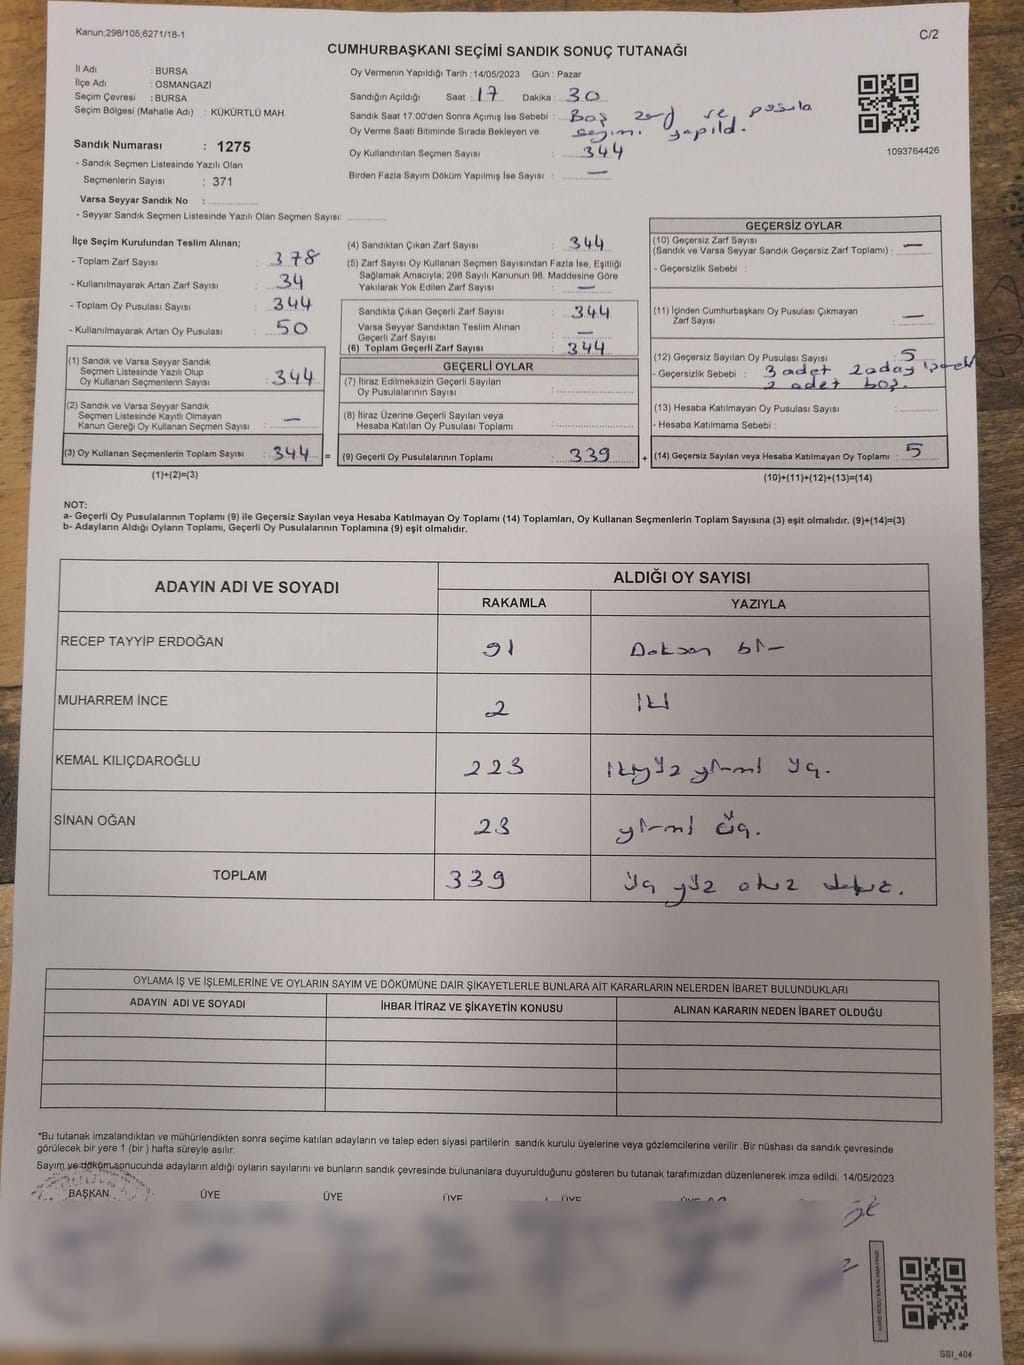 Kanun;298/105;6271/18-1
C/2
CUMHURBAŞKANI SEÇİMİ SANDIK SONUÇ TUTANAĞI
İl Adı : BURSA
İlçe Adı : OSMANGAZİ
Seçim Çevresi : BURSA
Seçim Bölgesi (Mahalle Adı) : KÜKÜRTLÜ MAH.
Sandık Numarası : 1275
- Sandık Seçmen Listesinde Yazılı Olan
Seçmenlerin Sayısı : 371
Varsa Seyyar Sandık No :
- Seyyar Sandık Seçmen Listesinde Yazılı Olan Seçmen Sayısı:
Oy Vermenin Yapıldığı Tarih :14/05/2023 Gün : Pazar
Sandığın Açıldığı Saat : 17 Dakika : 30
Sandık Saat 17:00'den Sonra Açımış İse Sebebi : Boş zarf ve pusula
Oy Verme Saati Bitiminde Sırada Bekleyen ve sayımı yapıldı.
Oy Kullandırılan Seçmen Sayısı : 344
Birden Fazla Sayım Döküm Yapılmış İse Sayısı : —
1093764426
İlçe Seçim Kurulundan Teslim Alınan;
- Toplam Zarf Sayısı : 378
- Kullanılmayarak Artan Zarf Sayısı : 34
- Toplam Oy Pusulası Sayısı : 344
- Kullanılmayarak Artan Oy Pusulası : 50
(1) Sandık ve Varsa Seyyar Sandık
Seçmen Listesinde Yazılı Olup
Oy Kullanan Seçmenlerin Sayısı : 344
(2) Sandık ve Varsa Seyyar Sandık
Seçmen Listesinde Kayıtlı Olmayan
Kanun Gereği Oy Kullanan Seçmen Sayısı : —
(3) Oy Kullanan Seçmenlerin Toplam Sayısı : 344 =
(1)+(2)=(3)
(4) Sandıktan Çıkan Zarf Sayısı : 344
(5) Zarf Sayısı Oy Kullanan Seçmen Sayısından Fazla İse, Eşitliği
Sağlamak Amacıyla; 298 Sayılı Kanunun 98. Maddesine Göre
Yakılarak Yok Edilen Zarf Sayısı : —
Sandıkta Çıkan Geçerli Zarf Sayısı : 344
Varsa Seyyar Sandıktan Teslim Alınan
Geçerli Zarf Sayısı : —
(6) Toplam Geçerli Zarf Sayısı : 344
GEÇERLİ OYLAR
(7) İtiraz Edilmeksizin Geçerli Sayılan
Oy Pusulalarının Sayısı :
(8) İtiraz Üzerine Geçerli Sayılan veya
Hesaba Katılan Oy Pusulası Toplamı :
(9) Geçerli Oy Pusulalarının Toplamı : 339 +
GEÇERSİZ OYLAR
(10) Geçersiz Zarf Sayısı
(Sandık ve Varsa Seyyar Sandık Geçersiz Zarf Toplamı) : —
- Geçersizlik Sebebi :
(11) İçinden Cumhurbaşkanı Oy Pusulası Çıkmayan
Zarf Sayısı : —
(12) Geçersiz Sayılan Oy Pusulası Sayısı : 5
- Geçersizlik Sebebi : 3 adet 2 aday
2 adet boş.
(13) Hesaba Katılmayan Oy Pusulası Sayısı :
- Hesaba Katılmama Sebebi :
(14) Geçersiz Sayılan veya Hesaba Katılmayan Oy Toplamı : 5
(10)+(11)+(12)+(13)=(14)
NOT:
a- Geçerli Oy Pusulalarının Toplamı (9) ile Geçersiz Sayılan veya Hesaba Katılmayan Oy Toplamı (14) Toplamları, Oy Kullanan Seçmenlerin Toplam Sayısına (3) eşit olmalıdır. (9)+(14)=(3)
b- Adayların Aldığı Oyların Toplamı, Geçerli Oy Pusulalarının Toplamına (9) eşit olmalıdır.
ADAYIN ADI VE SOYADI
ALDIĞI OY SAYISI
RAKAMLA YAZIYLA
RECEP TAYYİP ERDOĞAN 91 Doksan bir
MUHARREM İNCE 2 iki
KEMAL KILIÇDAROĞLU 223 ikiyüz yirmi üç.
SİNAN OĞAN 23 yirmi üç.
TOPLAM 339 üç yüz otuz dokuz.
OYLAMA İŞ VE İŞLEMLERİNE VE OYLARIN SAYIM VE DÖKÜMÜNE DAİR ŞİKAYETLERLE BUNLARA AİT KARARLARIN NELERDEN İBARET BULUNDUKLARI
ADAYIN ADI VE SOYADI İHBAR İTİRAZ VE ŞİKAYETİN KONUSU ALINAN KARARIN NEDEN İBARET OLDUĞU
*Bu tutanak imzalandıktan ve mühürlendikten sonra seçime katılan adayların ve talep eden siyasi partilerin sandık kurulu üyelerine veya gözlemcilerine verilir .Bir nüshası da sandık çevresinde
görülecek bir yere 1 (bir ) hafta süreyle asılır.
Sayım ve döküm sonucunda adayların aldığı oyların sayılarını ve bunların sandık çevresinde bulunanlara duyurulduğunu gösteren bu tutanak tarafımızdan düzenlenerek imza edildi. 14/05/2023
BAŞKAN ÜYE ÜYE ÜYE ÜYE ÜYE
SSI_404